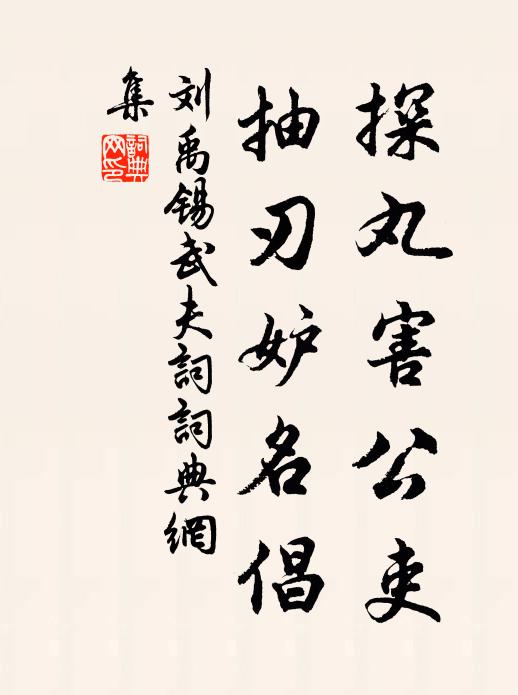 探丸害公吏
抽刃妒名倡
刘禹锡武夫詞詞典網
集
詞典
网印